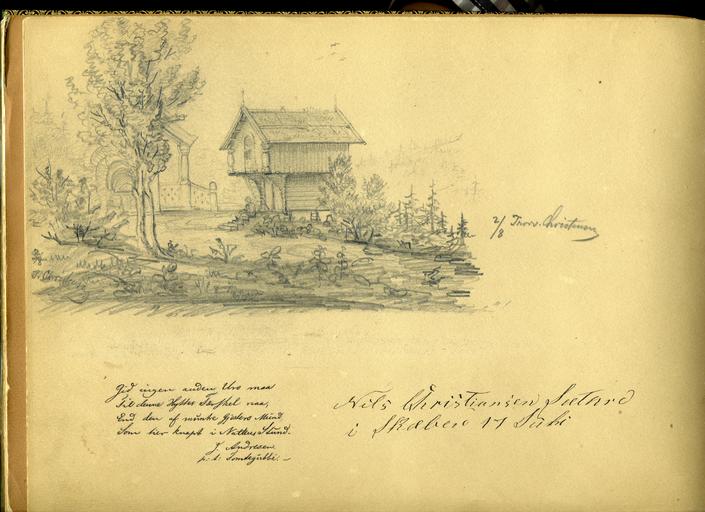 2/8 Thorv. Christensen
Gid ingen anden Uro maa
Til denne Hyttes Tærskel naa,
End den af muntre Gjæsters Mund
Som her knapt i Nattens Stund.
J. Andresen
p. t.
Nils Christiansen
i 17 Juli